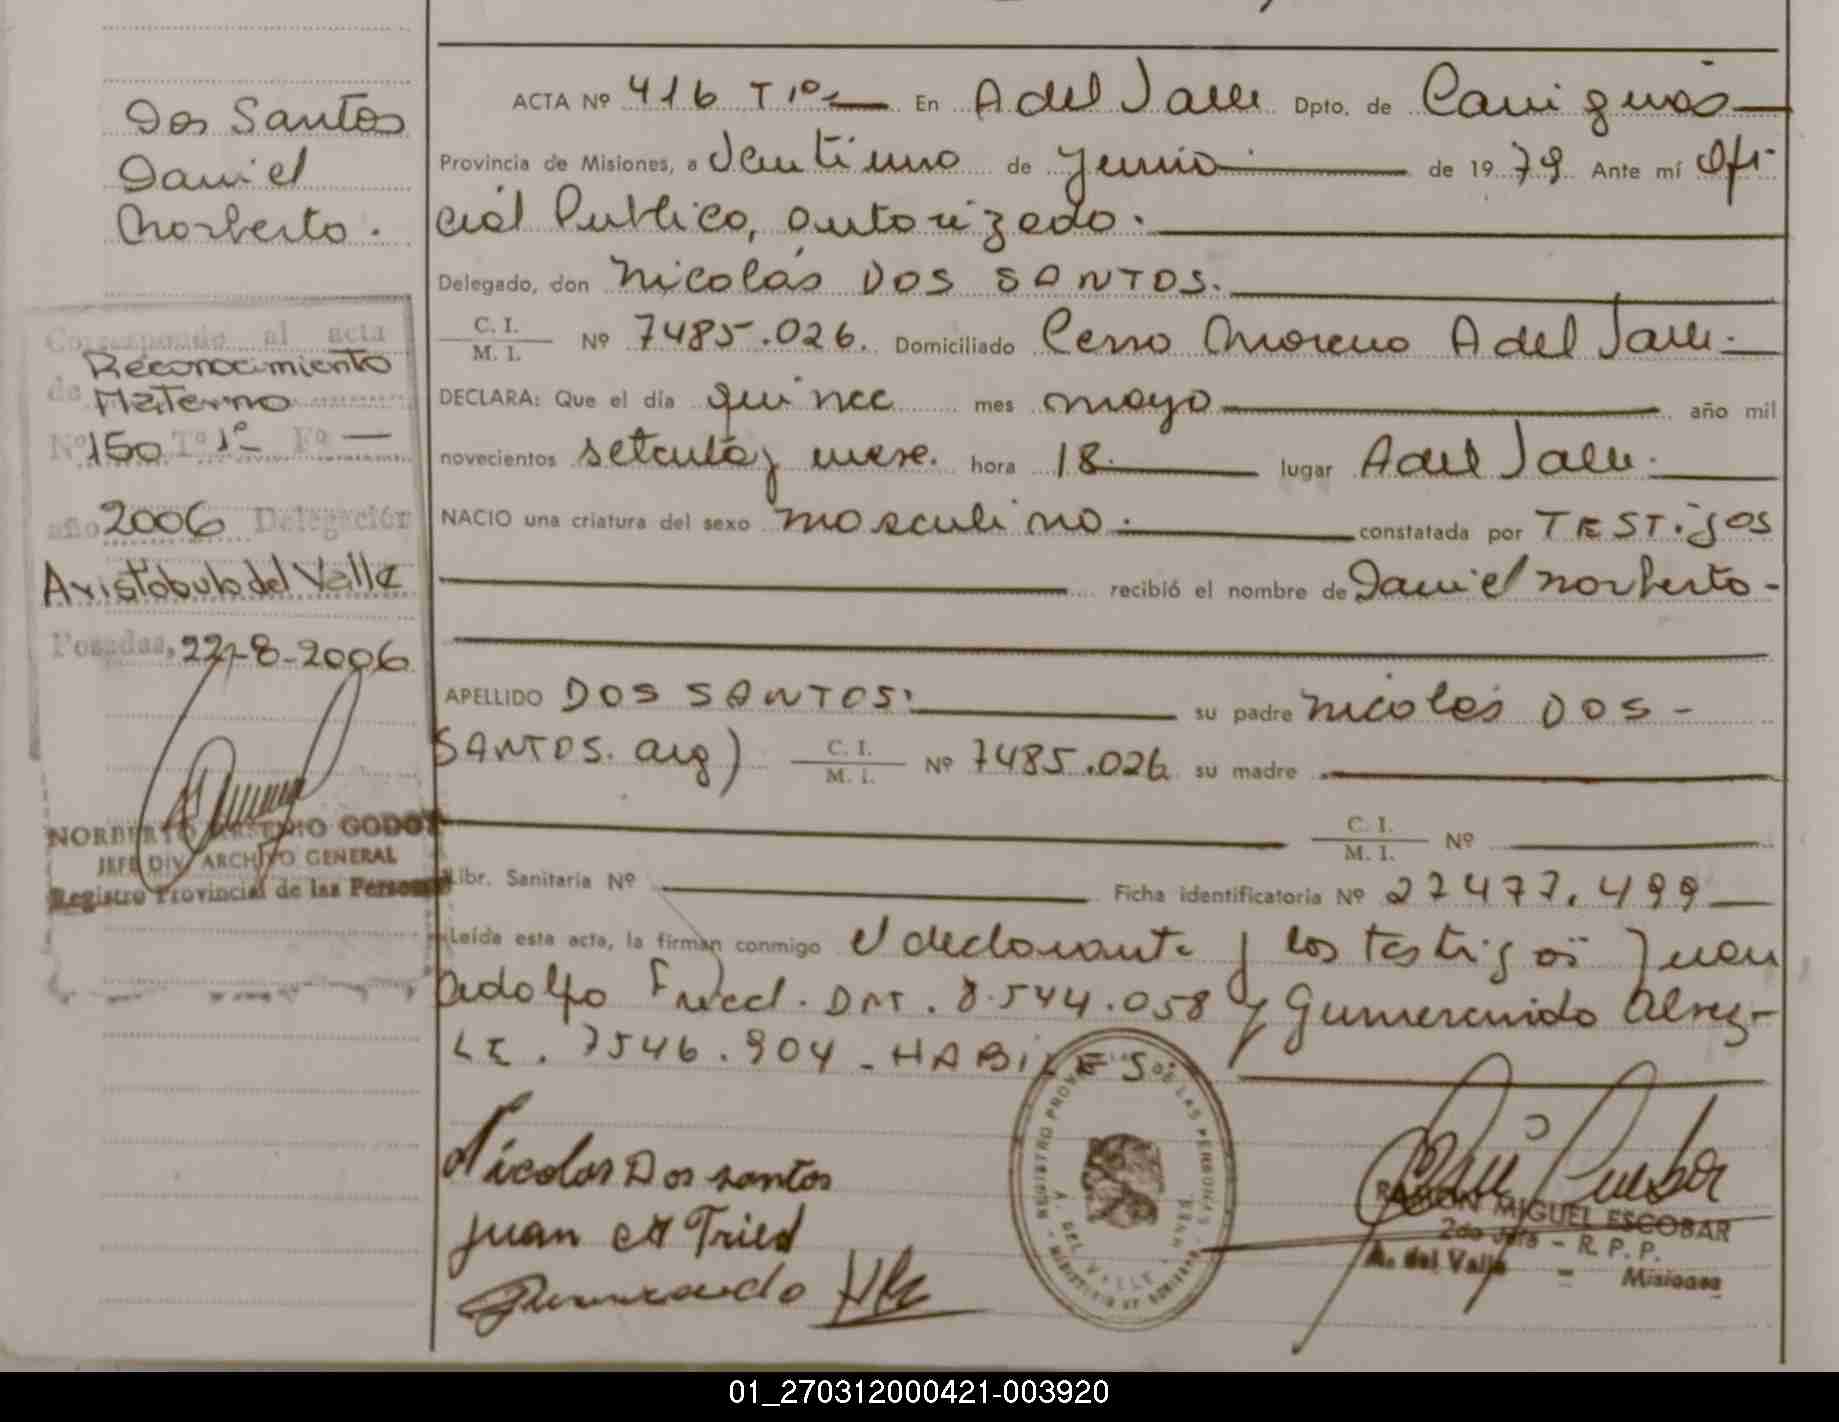 Dos Santos
Daniel
Norberto.
Corresponde al acta
de Reconocimiento
Materno
Nº 150 Tº 1º Fº —
año 2006 Delegación
Aristobulo del Valle
Posadas, 22-8-2006
NORBERTO ARSENIO GODOY
JEFE DIV. ARCHIVO GENERAL
Registro Provincial de las Personas
ACTA Nº 416 T1º En A del Valle Dpto. de Cainguas
Provincia de Misiones, a Veintiuno de Junio de 1979 Ante mí Ofi-
cial Publico, autorizado.
Delegado, don Nicolás DOS SANTOS.
C. I.
M. I. Nº 7485.026. Domiciliado Cerro Moreno A del Valle.
DECLARA: Que el día quince mes mayo año mil
novecientos setenta y nueve. hora 18. lugar A del Valle.
NACIO una criatura del sexo masculino. constatada por TESTigos
recibió el nombre de Daniel Norberto-
APELLIDO DOS SANTOS. su padre Nicolás DOS-
SANTOS. arg) C. I.
M. I. Nº 7485.026 su madre
C. I.
M. I. Nº
Libr. Sanitaria Nº Ficha identificatoria Nº 27477.499
Leída esta acta, la firman conmigo el declarante y los testigos Juan
Adolfo Fried. DNI. 8.544.058 y Gumercindo Alvez-
LE. 7546.904 - HABILES.
Nicolas Dos santos
Juan A Fried
REGISTRO PROVINCIAL DE LAS PERSONAS
A. DEL VALLE
MINISTERIO DE GOBIERNO
RAMON MIGUEL ESCOBAR
2do Jefe - R. P. P.
A. del Valle - Misiones
01_270312000421-003920